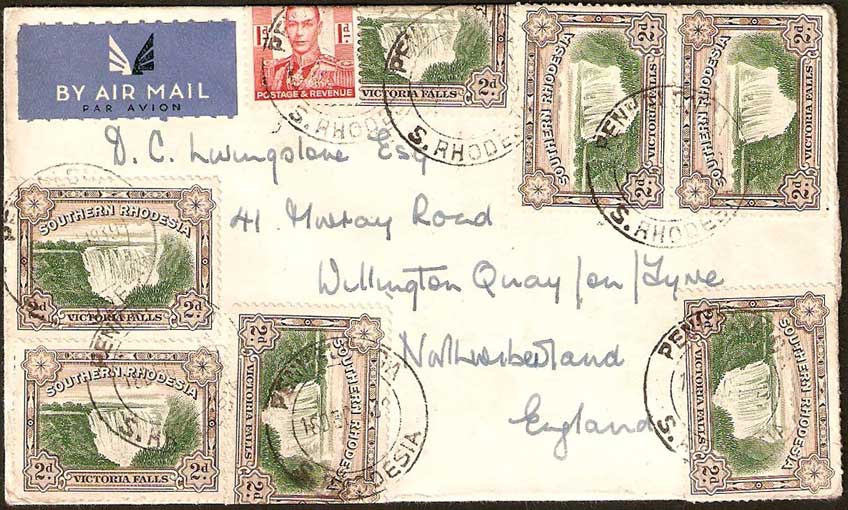 BY AIR MAIL
PAR AVION
1d 1d
POSTAGE & REVENUE
VICTORIA FALLS 2d
S. RHODESIA
S. RHODESIA
SOUTHERN RHODESIA
2d VICTORIA FALLS 2d
SOUTHERN RHODESIA
2d VICTORIA FALLS 2d
S. RHODESIA
D. C. Livingstone Esq
41 Murray Road
Willington Quay/on/Tyne
Northumberland
England
SOUTHERN RHODESIA
2d VICTORIA FALLS 2d
SOUTHERN RHODESIA
2d VICTORIA FALLS 2d
SOUTHERN RHODESIA
2d VICTORIA FALLS 2d
SOUTHERN RHODESIA
2d VICTORIA FALLS 2d